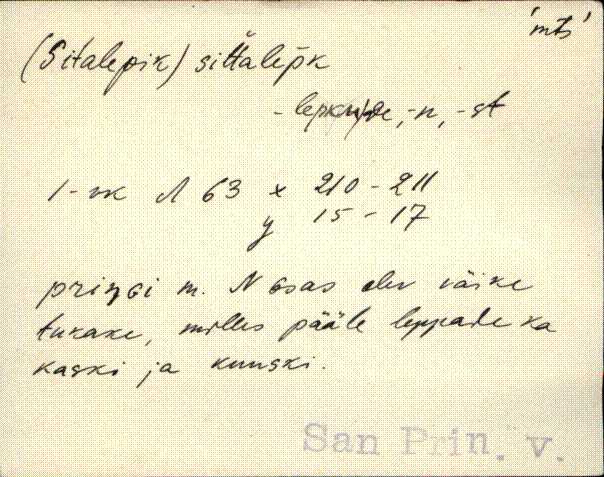 'mts'
(Sitalepik) sittälepk
-lepkude, -n, -st
1-vk N 63 x 210-211
y 15-17
pringi m. N osas olev väike
tukake, milles pääle leppade ka
kaski ja kuuski.
San Prin. v.